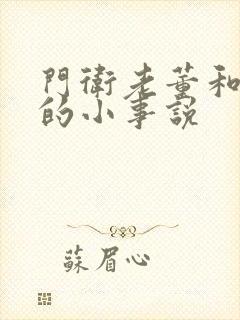 門衛老董和
的小事說
蘇眉心